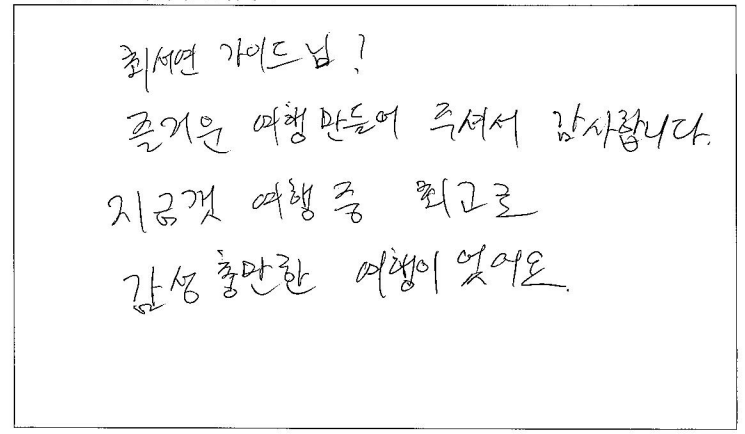 최서연 가이드님!
즐거운 여행 만들어 주셔서 감사합니다.
지금껏 여행 중 최고로
감성 충만한 여행이 었어요.